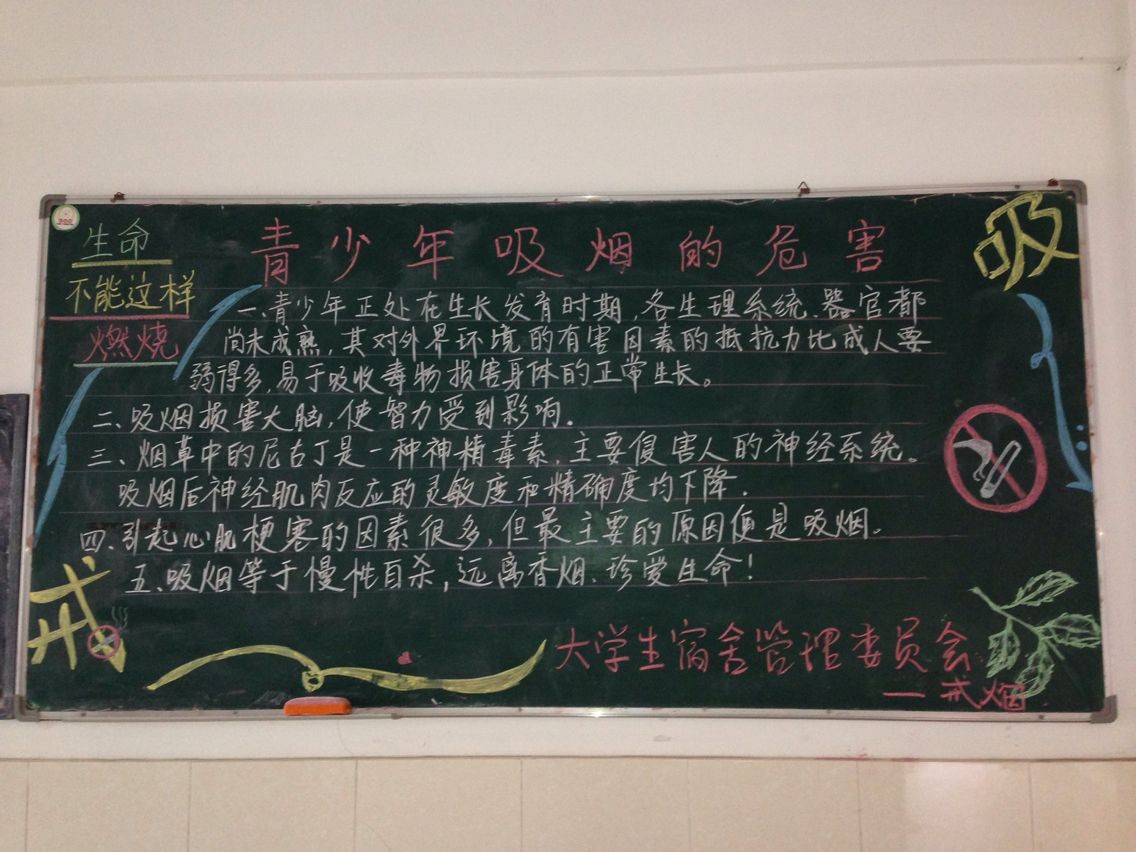 生命
不能这样
燃烧
青少年吸烟的危害
吸
一、青少年正处在生长发育时期,各生理系统、器官都
尚未成熟,其对外界环境的有害因素的抵抗力比成人要
弱得多,易于吸收毒物损害身体的正常生长。
二、吸烟损害大脑,使智力受到影响.
三、烟草中的尼古丁是一种神精毒素,主要侵害人的神经系统。
吸烟后神经肌肉反应的灵敏度和精确度均下降.
四、引起心肌梗害的因素很多,但最主要的原因便是吸烟。
五、吸烟等于慢性自杀,远离香烟、珍爱生命!
戒
大学生宿舍管理委员会
—戒烟